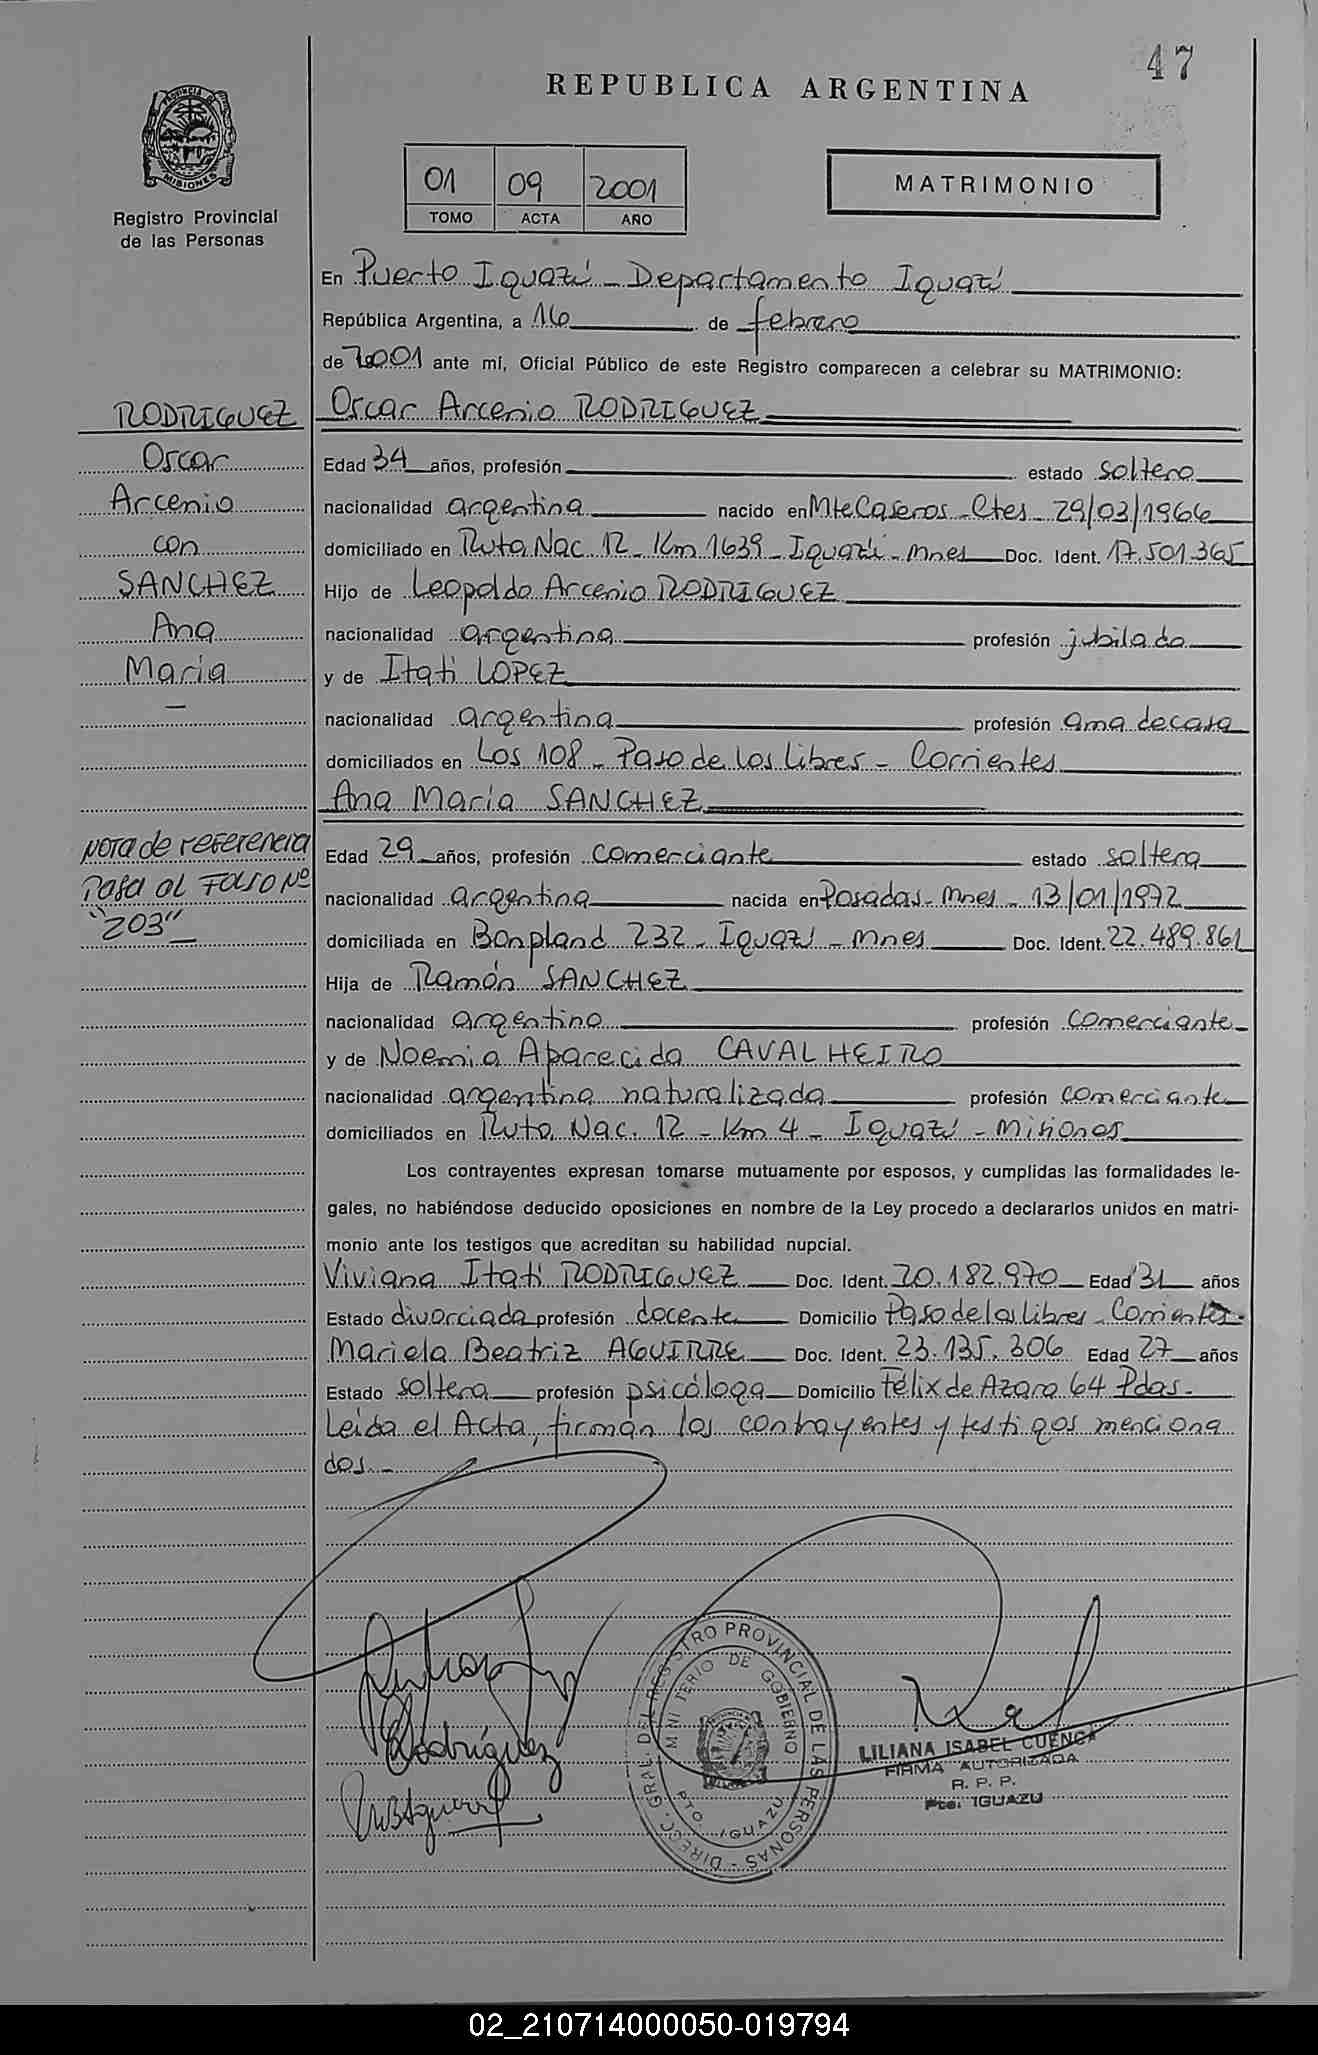 47
REPUBLICA ARGENTINA
PROVINCIA DE MISIONES
Registro Provincial
de las Personas
01 09 2001
TOMO ACTA AÑO
MATRIMONIO
En Puerto Iguazú - Departamento Iguazú
República Argentina, a 16 de febrero
de 2001 ante mí, Oficial Público de este Registro comparecen a celebrar su MATRIMONIO:
RODRIGUEZ
Oscar
Arcenio
con
SANCHEZ
Ana
María
—
Nota de referencia
Pasa al Folio Nº
"203"
Oscar Arcenio RODRIGUEZ
Edad 34 años, profesión estado soltero
nacionalidad argentina nacido en Mte Caseros - Ctes - 29/03/1966
domiciliado en Ruta Nac. 12 - Km 1639 - Iguazú - Mnes Doc. Ident. 17.501.365
Hijo de Leopoldo Arcenio RODRIGUEZ
nacionalidad argentina profesión jubilado
y de Itatí LOPEZ
nacionalidad argentina profesión ama de casa
domiciliados en Los 108 - Paso de los Libres - Corrientes
Ana María SANCHEZ
Edad 29 años, profesión comerciante estado soltera
nacionalidad argentina nacida en Posadas - Mnes - 13/01/1972
domiciliada en Bonpland 232 - Iguazú - Mnes Doc. Ident. 22.489.861
Hija de Ramón SANCHEZ
nacionalidad argentino profesión comerciante
y de Noemia Aparecida CAVALHEIRO
nacionalidad argentina naturalizada profesión comerciante
domiciliados en Ruta Nac. 12 - Km 4 - Iguazú - Misiones
Los contrayentes expresan tomarse mutuamente por esposos, y cumplidas las formalidades le-
gales, no habiéndose deducido oposiciones en nombre de la Ley procedo a declararlos unidos en matri-
monio ante los testigos que acreditan su habilidad nupcial.
Viviana Itatí RODRIGUEZ Doc. Ident. 20.182.970 Edad 31 años
Estado divorciada profesión docente Domicilio Paso de los Libres - Corrientes.
Mariela Beatriz AGUIRRE Doc. Ident. 23.135.306 Edad 27 años
Estado soltera profesión psicóloga Domicilio Félix de Azara 64 Pdas.
Leída el Acta, firman los contrayentes y testigos menciona
dos.-
Rodríguez
DIRECC. GRAL. DEL REGISTRO PROVINCIAL DE LAS PERSONAS -
MINISTERIO DE GOBIERNO
PTO. IGUAZU
LILIANA ISABEL CUENCA
FIRMA AUTORIZADA
R. P. P.
Pto. IGUAZU
02_210714000050-019794